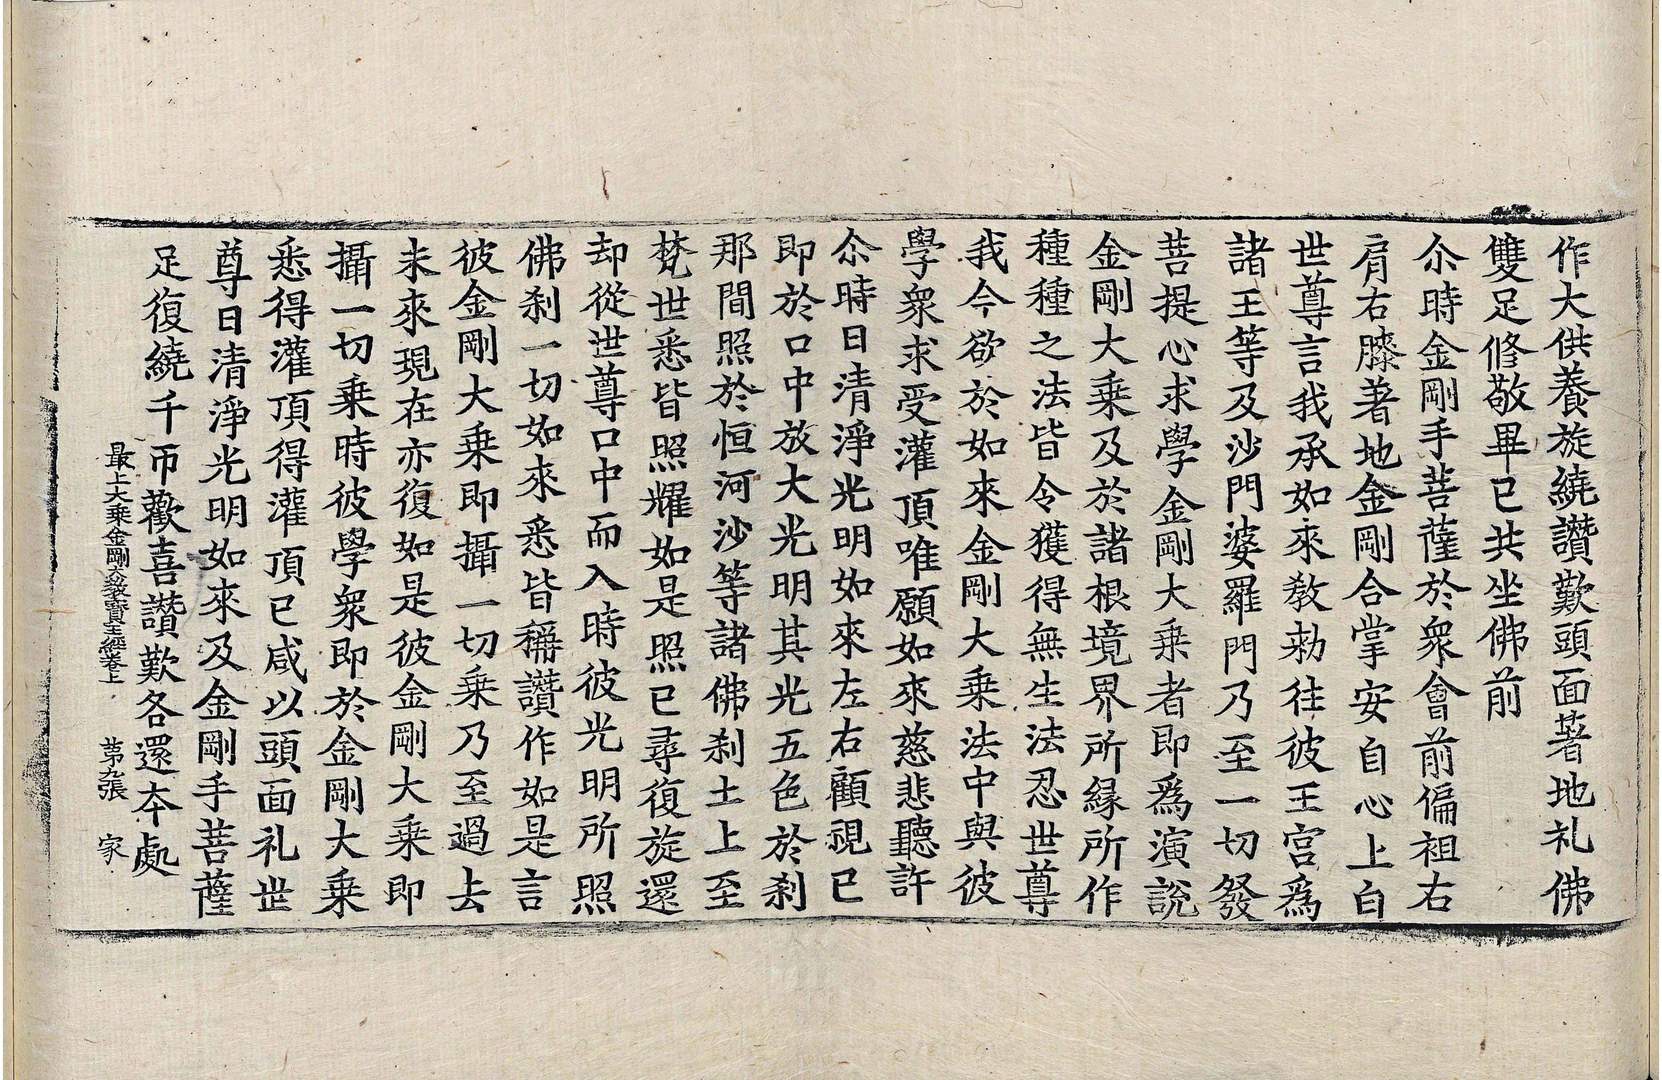 作大供養旋繞讚歎頭面著地礼佛
雙足修敬畢已共坐佛前
尒時金剛手菩薩於衆會前偏袒右
肩右膝著地金剛合掌安自心上白
世尊言我承如來教勑往彼王宮爲
諸王等及沙門婆羅門乃至一切發
菩提心求學金剛大乗者即爲演說
金剛大乗及於諸根境界所縁所作
種種之法皆令獲得無生法忍世尊
我今欲於如來金剛大乗法中與彼
學衆求受灌頂唯願如來慈悲聽許
尒時日清淨光明如來左右顧視已
即於口中放大光明其光五色於刹
那間照於恒河沙等諸佛刹土上至
梵世悉皆照耀如是照已尋復旋還
却從世尊口中而入時彼光明所照
佛刹一切如來悉皆稱讚作如是言
彼金剛大乗即攝一切乗乃至過去
未來現在亦復如是彼金剛大乗即
攝一切乗時彼學衆即於金剛大乗
悉得灌頂得灌頂已咸以頭面礼世
尊日清淨光明如來及金剛手菩薩
足復繞千帀歡喜讚歎各還本處
最上大乗金剛大教寳王經卷上 第九張 家